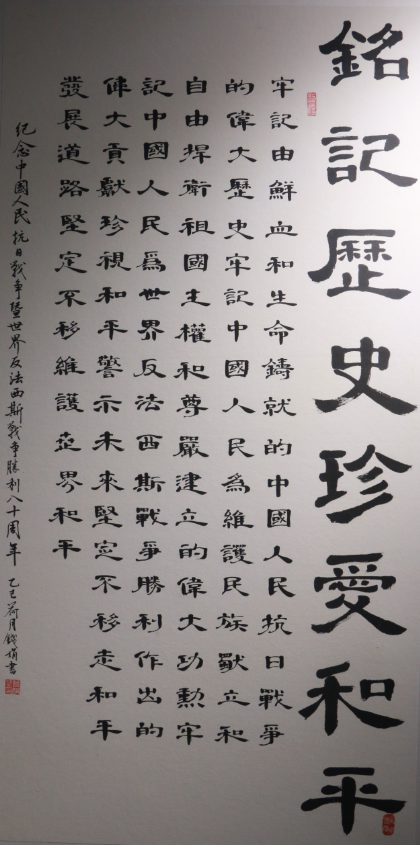 銘記歷史珍愛和平
牢記由鮮血和生命鑄就的中國人民抗日戰爭
的偉大歷史牢記中國人民為維護民族獨立和
自由捍衛祖國主權和尊嚴建立的偉大功勲牢
記中國人民爲世界反法西斯戰爭勝利作出的
偉大貢獻珍視和平警示未來堅定不移走和平
發展道路堅定不移維護世界和平
紀念中國人民抗日戰争暨世界反法西斯戰争勝利八十周年
乙巳荷月錢娟書